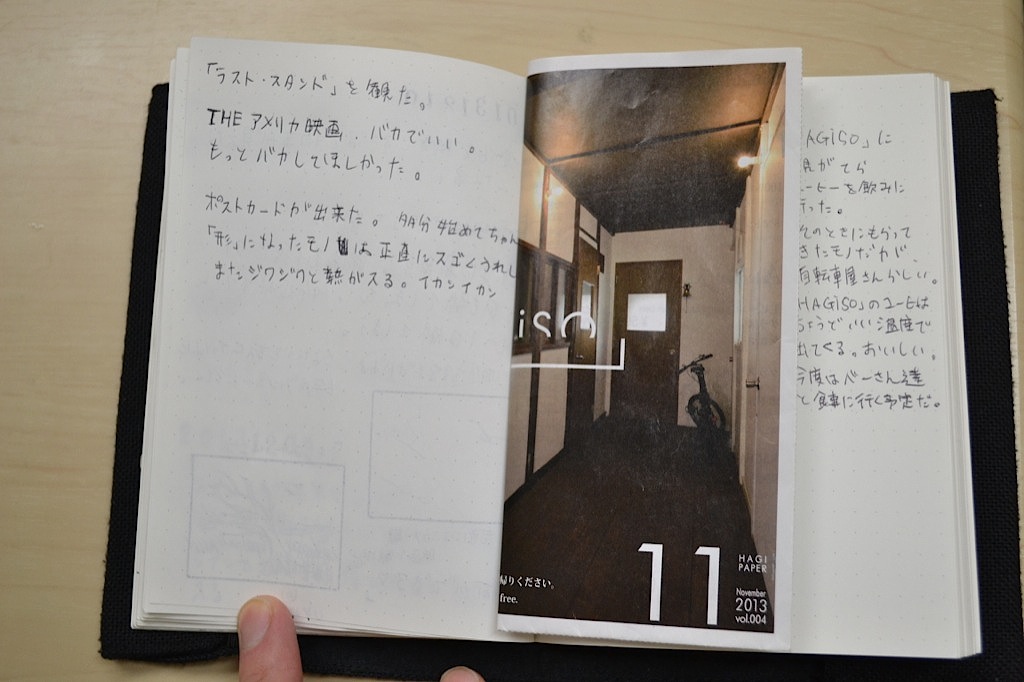 「ラスト・スタンド」を観た。
THE アメリカ映画、バカでいい。
もっとバカしてほしかった。
ポストカードが出来た。多分始めてちゃん
「形」になったモノは正直にスゴくうれし
またジワジワと熱がスる。イカンイカン
iso
帰りください。
free.
11
HAGI
PAPER
November
2013
vol.004
AGiSO」に
見がてら
コーヒーを飲みに
行った。
そのときにもらって
きたモノだが、
自転車屋さんらしい。
HAGiSO」のコーヒは
ちょうどいい温度で
出てくる。おいしい。
今度はべーさん達
と食事に行く予定だ。